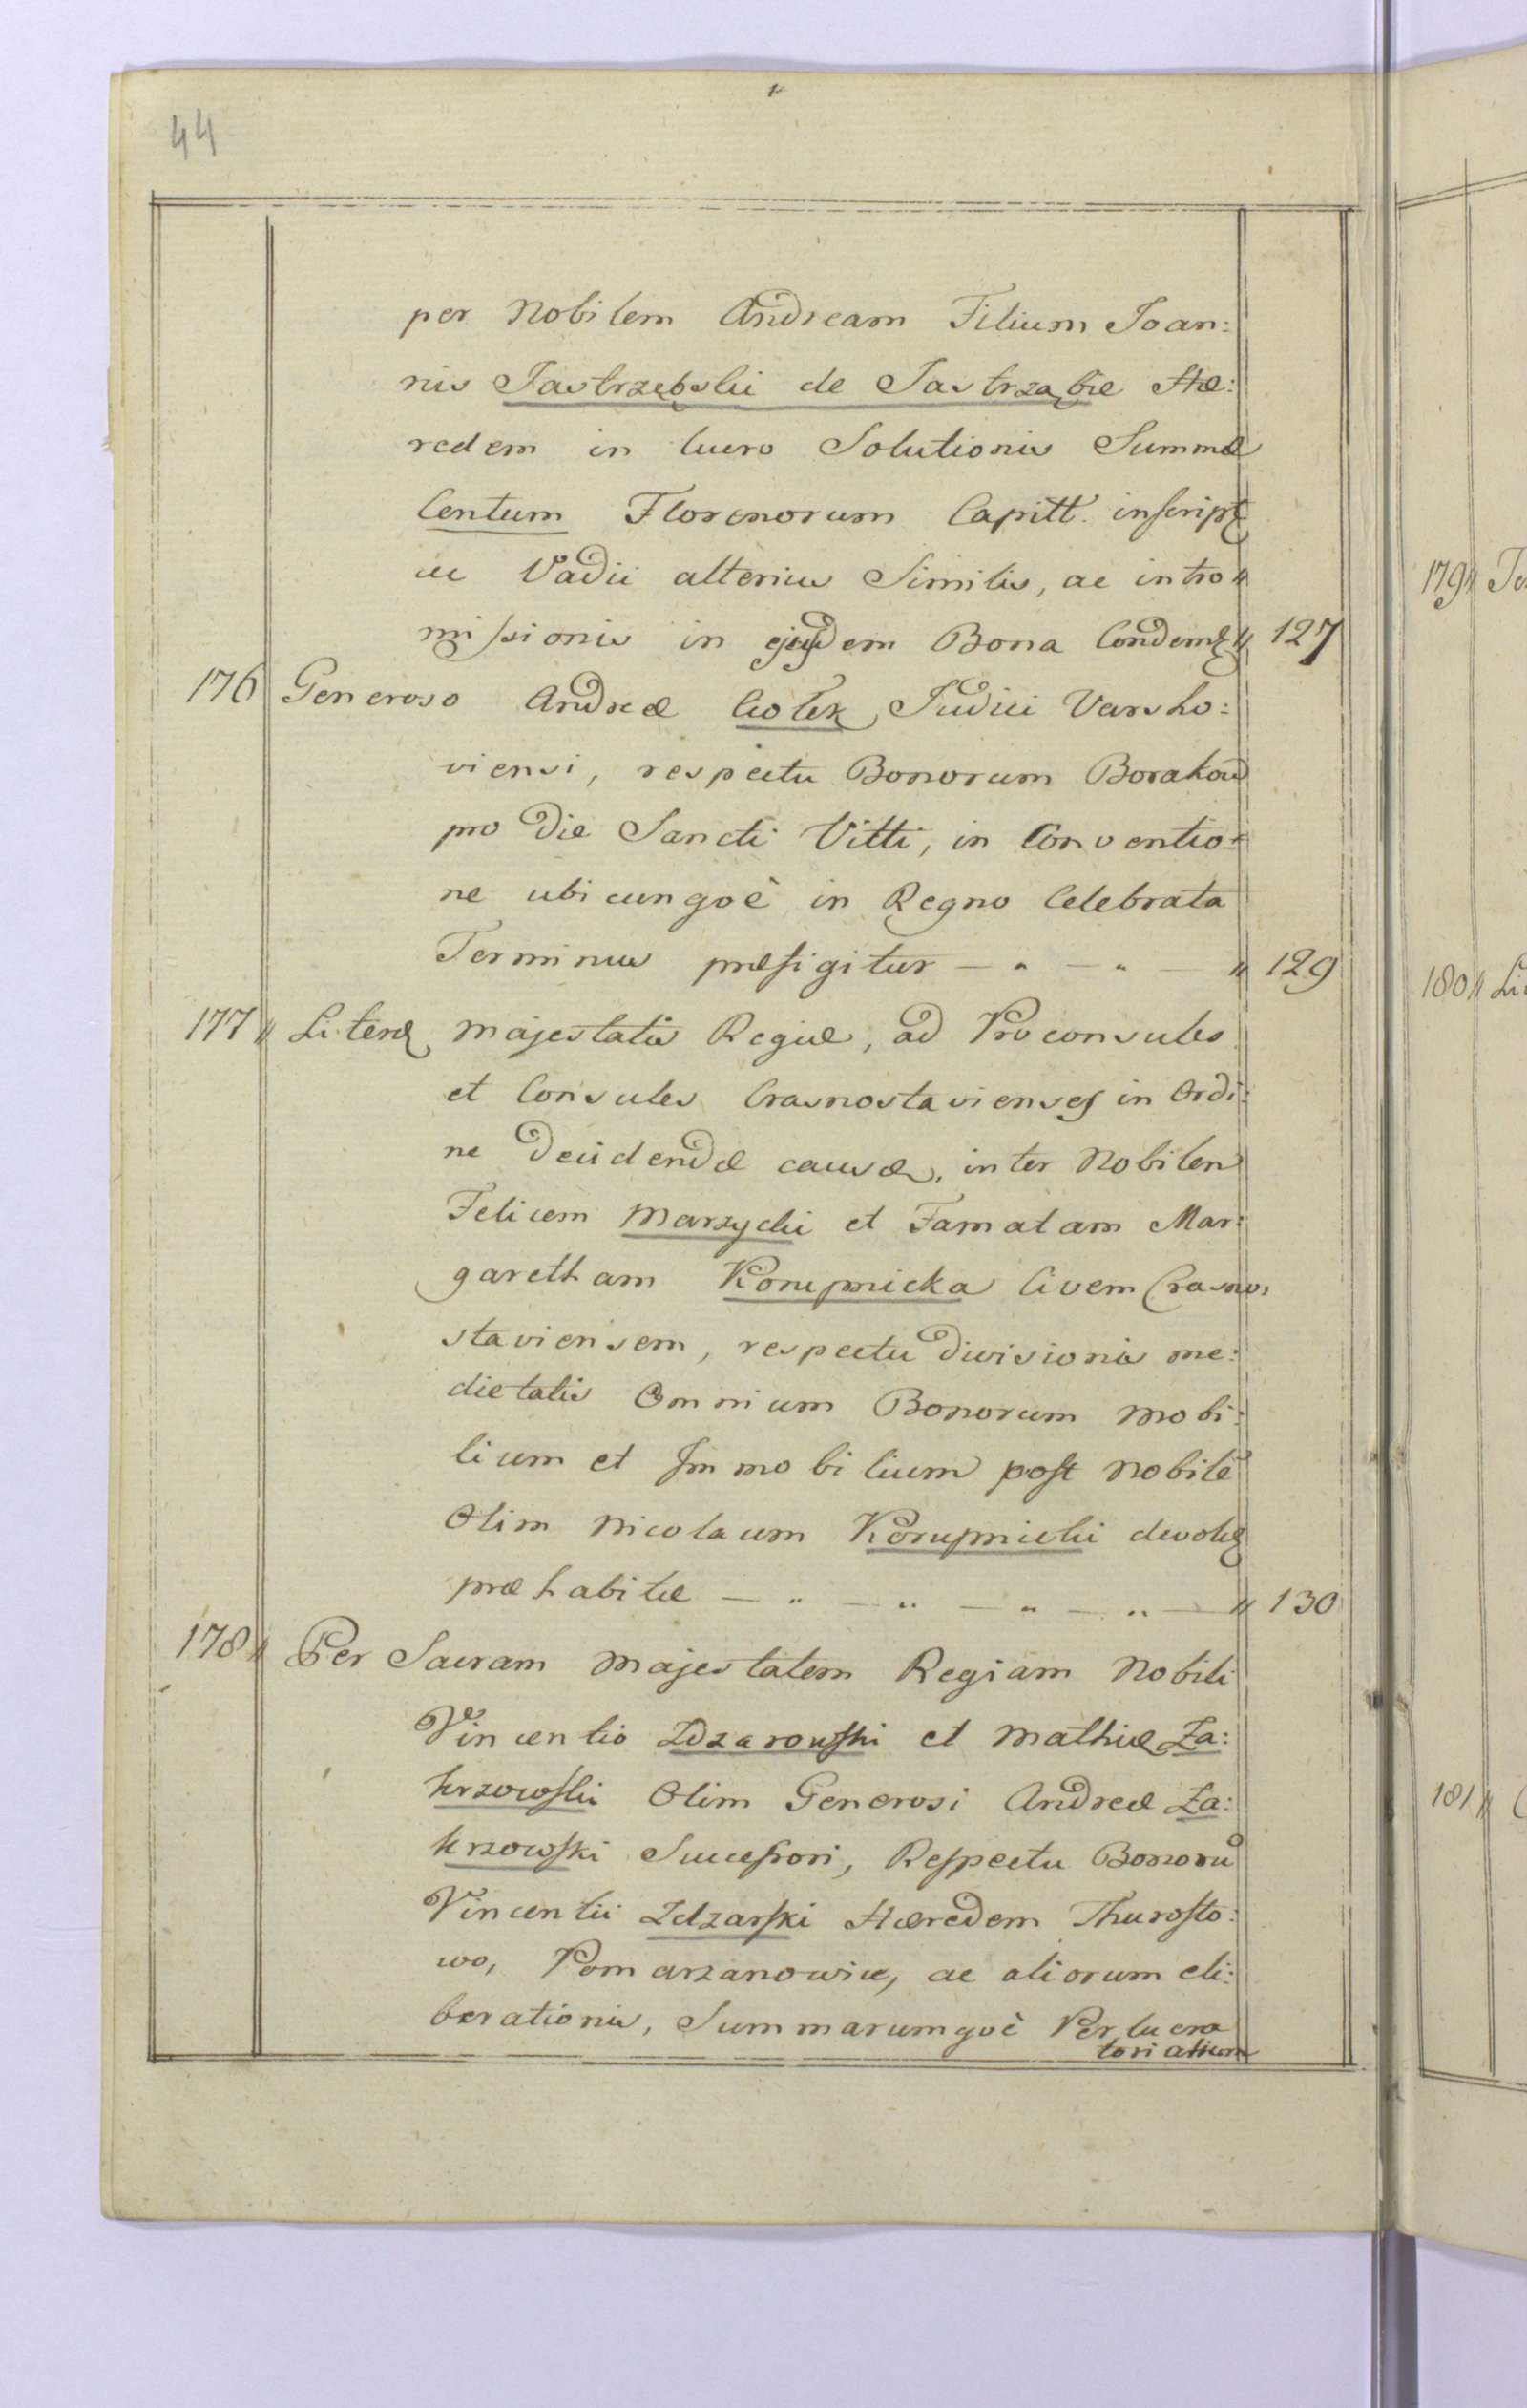 44
per Nobilem Andream Filium Joan:
nis Jastrzębski de Jastrząbie Hæ:
redem in lucro Solutionis Summæ
Centum Florenorum Capitt. inscript
ac Vadii alterius Similis, ac intro〃
missionis in ejusdem Bona Condemt〃 127
176 Generoso Andreæ Ciołek, Judici Varsho:
viensi, respectu Bonorum Borakow
pro Die Sancti Vitti, in Conventio=
ne ubicunqoè in Regno Celebrata
Terminus præfigitur — „ — „ — 〃 129
177〃 Literæ Majestatis Regiæ, ad Proconsules
et Consules Crasnostavienses in Ordi:
ne Decidendæ causæ, inter Nobilem
Felicem Marzycki et Famatam Mar:
garetham Korupnicka Civem Crasno,
staviensem, respectu Divisionis me:
dietatis Omnium Bonorum Mobi:
lium et Immobilium post Nobilē
Olim Nicolaum Korupnicki devolut
præhabitæ — „ — „ — „ — „ — 〃 130
178〃 Per Sacram Majestatem Regiam Nobili
Vincentio Zdzarowski et Mathiæ Za:
krzowski Olim Generosi Andreæ Za:
krzowski Successori, Respectu Bonorū
Vincentii Zdzarski Hæredem Thurosto:
wo, Pomarzanowice, ac aliorum eli:
berationis, Summarumqoè Per lucra
tori alium
179〃 Jo
180〃 Li
181〃